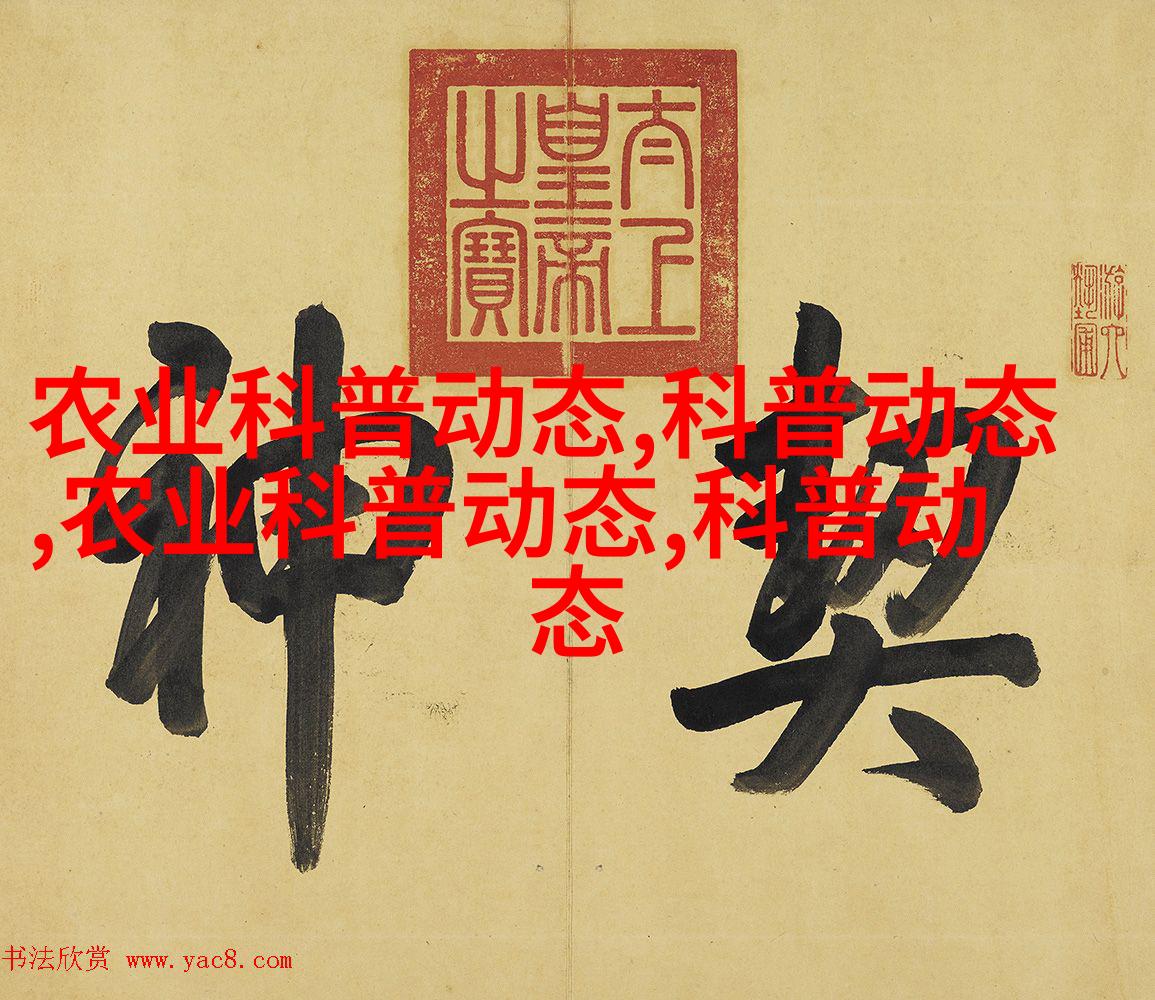 太上
皇帝
之寶
游六
藝圃
契神
农业科普动态,科普动态
,农业科普动态,科普动
态
书法欣赏 www.yac8.com